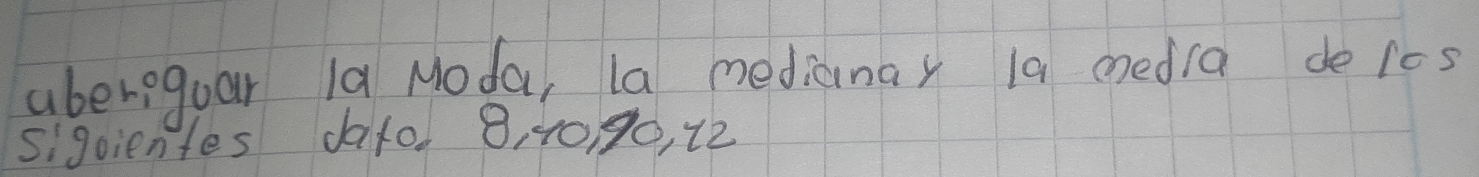 aberiguar la Moda, la mediana y la media de los
sigoientes dato. 8,10,10,12